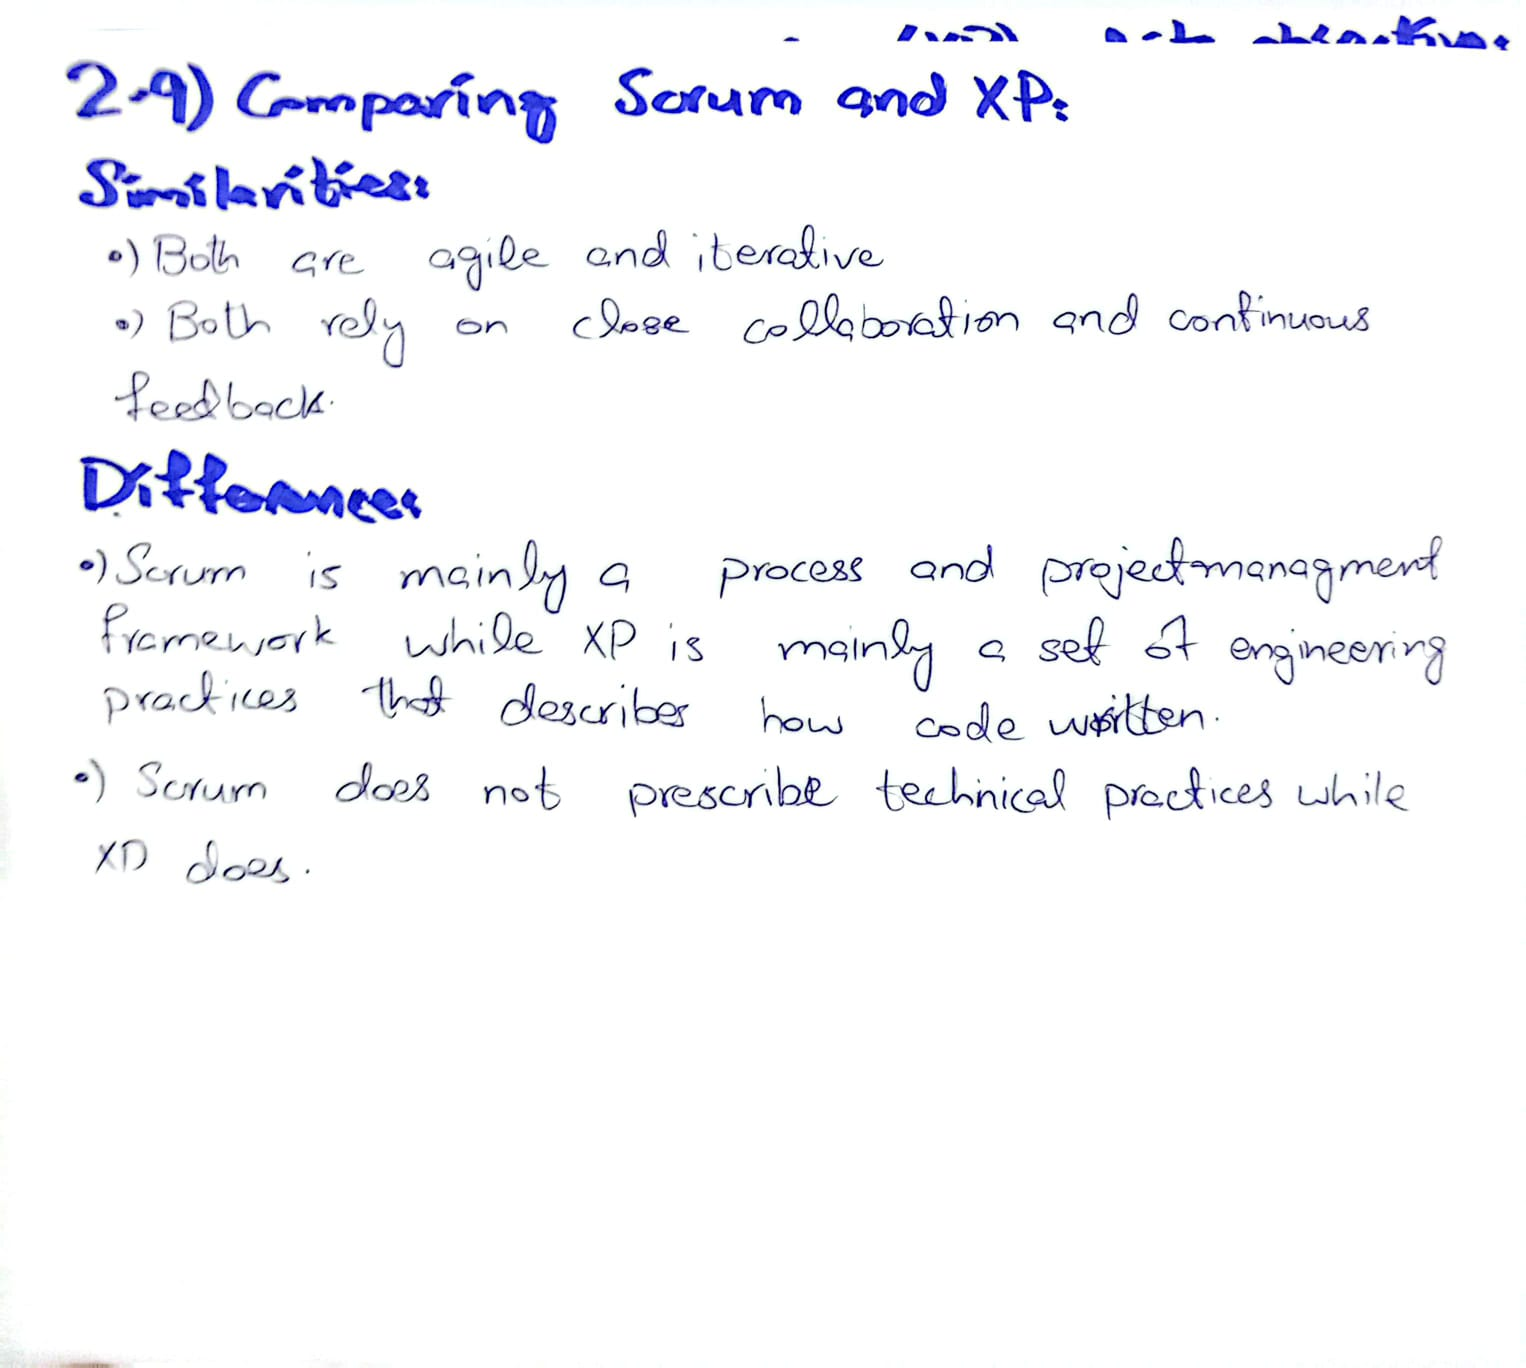 2.9) Comparing Scrum and XP:
Similarities:
•) Both are agile and iterative
•) Both rely on close collaboration and continuous
feedback.
Differences
•) Scrum is mainly a process and project managment
framework while XP is mainly a set of engineering
practices that describes how code written.
•) Scrum does not prescribe technical practices while
XP does.